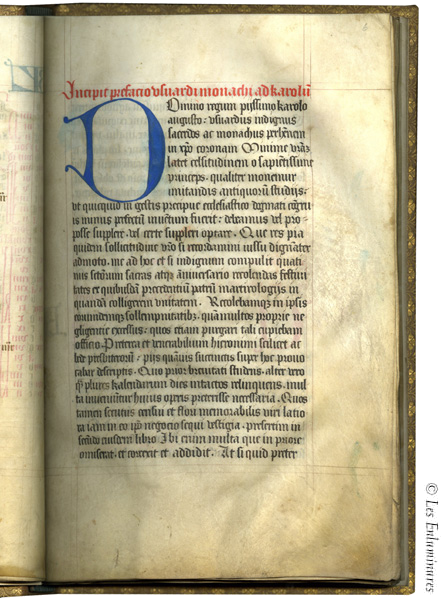 Incipit prefacio vsuardi monachi ad karolū
Domino regum pijssimo karolo
augusto: vsuardus indignus
sacerdos ac monachus perhēnem
in xp̄o coronam Minime vr̄az
latet celsitudinem o sapientissime
princeps. qualiter monemur
imitandis antiquorū studijs:
vt quicquid in gestis precipue ecclesiastico dogmati cōgru
is minus perfectū inuentum fuerit: debeamus vel pro
posse supplere. vel certe suppleri optare. Que res pia
quidem sollicitudine
admoto. me ad hoc et si indignum compulit quati
nus sanctorum sacras atqȝ anniuersario recolendas festiui
tates ex quibusdā precedentiū patrū martirologijs in
quandā colligerem vnitatem. Recolebamqȝ in ipsis
eorundemqȝ sollempnitatibȝ. quā multos proprie ne
gligentie excessus: quos etiam purgari tali cupiebam
officio. Preterea et venerabilium hieronimi scilicet ac
bede presbiterorū: pijs quāuis succincens super hoc prouo
cabar descriptis. Quo prior breuitati studens. alter vero
qȝ plures kalendarum dies intactos relinquens. mul
ta inueniuntur huius operis preterisse necessaria. Quos
tamen secutus censui et flori memorabilis viri latio
ra iam in eo ip̄o negocio sequi vestigia. presertim in
secūdo eiusdem libro. Ibi enim multa que in priore
omiserat. et correxit et addidit. At si quid preter
© Les Enluminures